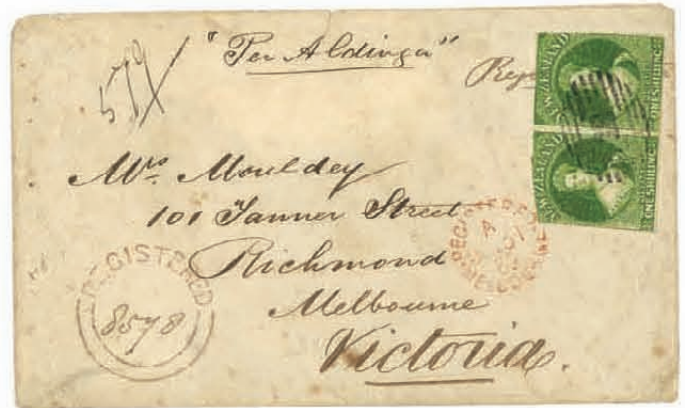 "Per Aldinga"
579
Reg
NEW ZEALAND
ONE SHILLING
NEW ZEALAND
ONE SHILLING
Mrs. Mouldey
101 Tanner Street
Richmond
Melbourne
Victoria.
REGISTERED
8578
REGISTERED
MELBOURNE